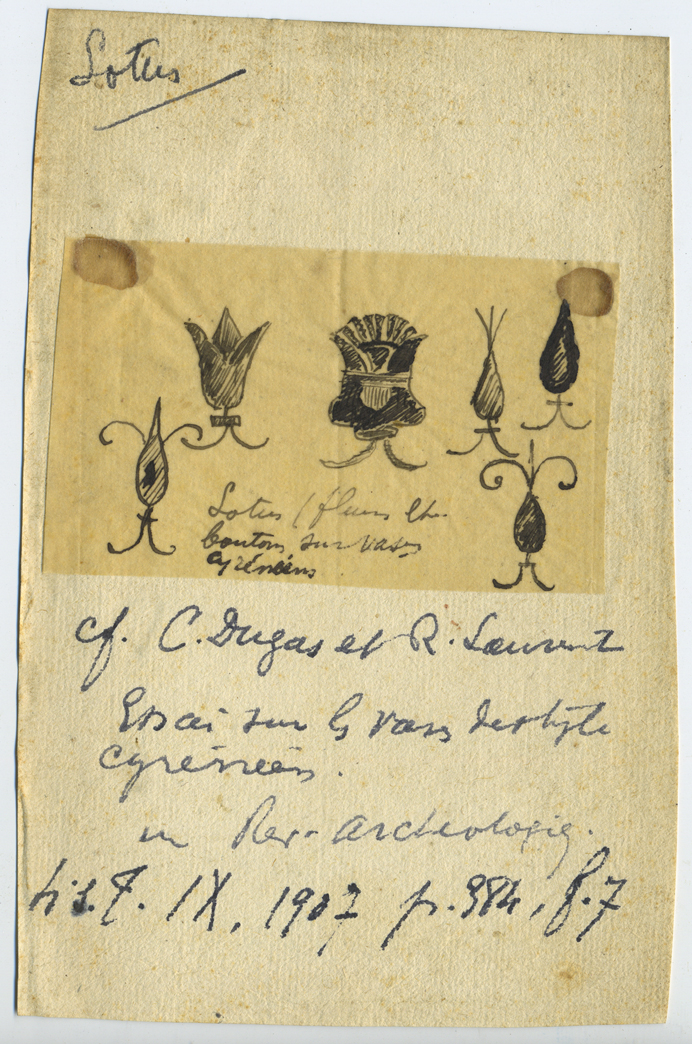 Lotus
Lotus (fleurs et
boutons, sur vases
cyrénéens
cf. C. Dugas et R. Laurent
Essai sur les vases de style
cyrénéen.
in Rev. Archéologiq.
t. IX, 1907 p. 384, f. 7